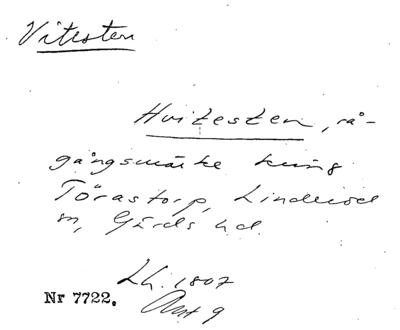 Vitesten
Hvitesten, rå-
gångsmärke kring
Törastorp, Linderöd
sn, Gärds hd.
Lh. 1807
Nr 7722. Akt 9